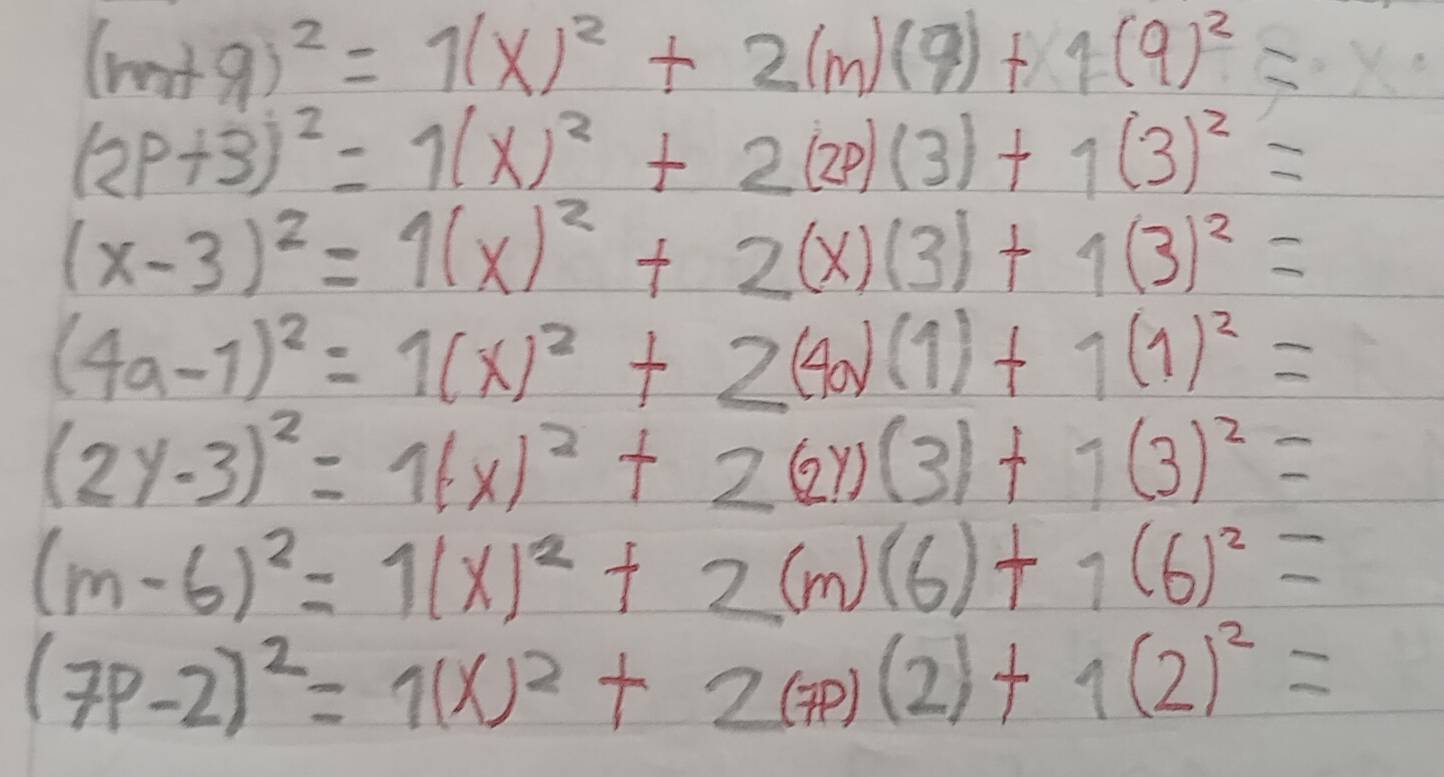 (m+9)² = 1(x)² + 2(m)(9) + 1(9)² =
(2p+3)² = 1(x)² + 2(2p)(3) + 1(3)² =
(x-3)² = 1(x)² + 2(x)(3) + 1(3)² =
(4a-1)² = 1(x)² + 2(4a)(1) + 1(1)² =
(2y-3)² = 1(x)² + 2(2y)(3) + 1(3)² =
(m-6)² = 1(x)² + 2(m)(6) + 1(6)² =
(7p-2)² = 1(x)² + 2(7p)(2) + 1(2)² =